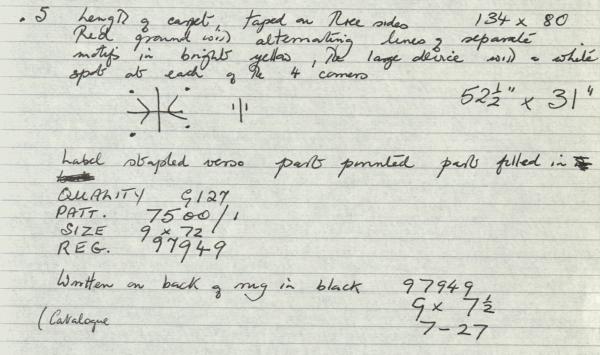 .5 Length of carpet, taped on three sides 134 x 80
Red ground with alternating lines of separate
motifs in bright yellow, the large device with a white
spot at each of the 4 corners
52½" x 31"
Label stapled verso part printed part filled in
QUALITY G127
PATT. 7500/1
SIZE 9 x 72
REG. 97949
Written on back of rug in black 97949
9 x 7½
7-27
(Catalogue